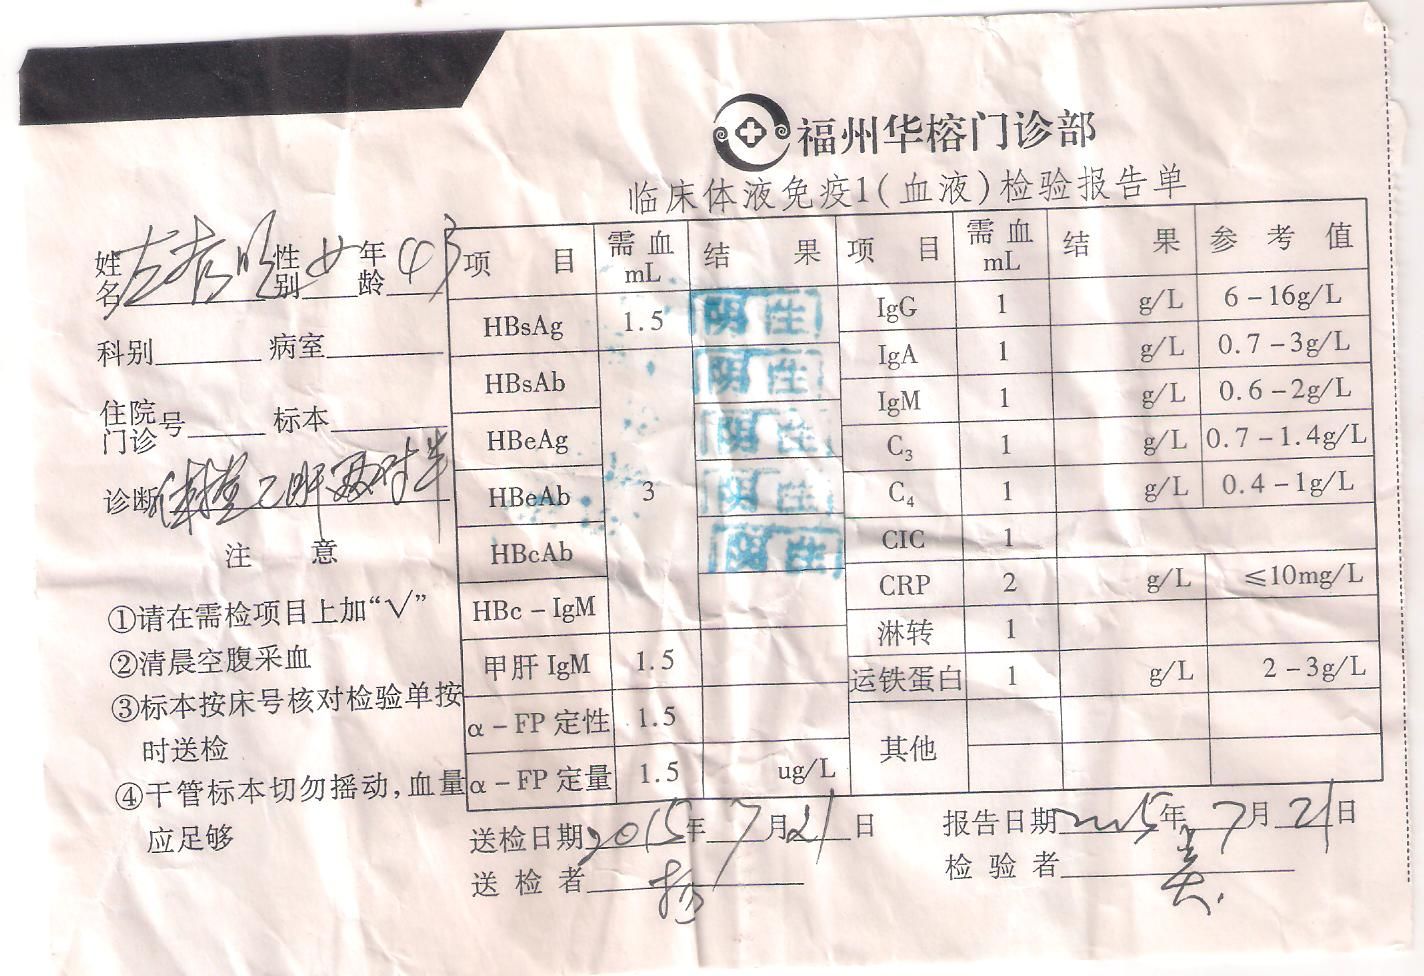 福州华榕门诊部
临床体液免疫1(血液)检验报告单
姓名 性别 女 年龄 43
科别 病室
住院门诊号 标本
诊断 乙肝两对半
注 意
①请在需检项目上加“√”
②清晨空腹采血
③标本按床号核对检验单按
时送检
④干管标本切勿摇动,血量
应足够
项 目 需血mL 结 果 项 目 需血mL 结 果 参 考 值
HBsAg 1.5 阴性 IgG 1 g/L 6-16g/L
HBsAb 阴性 IgA 1 g/L 0.7-3g/L
HBeAg 阴性 IgM 1 g/L 0.6-2g/L
C3 1 g/L 0.7-1.4g/L
HBeAb 3 阴性 C4 1 g/L 0.4-1g/L
HBcAb 阴性 CIC 1
HBc-IgM CRP 2 g/L ≤10mg/L
淋转 1
甲肝IgM 1.5 运铁蛋白 1 g/L 2-3g/L
α-FP定性 1.5 其他
α-FP定量 1.5 ug/L
送检日期 2015年 7月 21日 报告日期 2015年 7月 21日
送 检 者 检 验 者